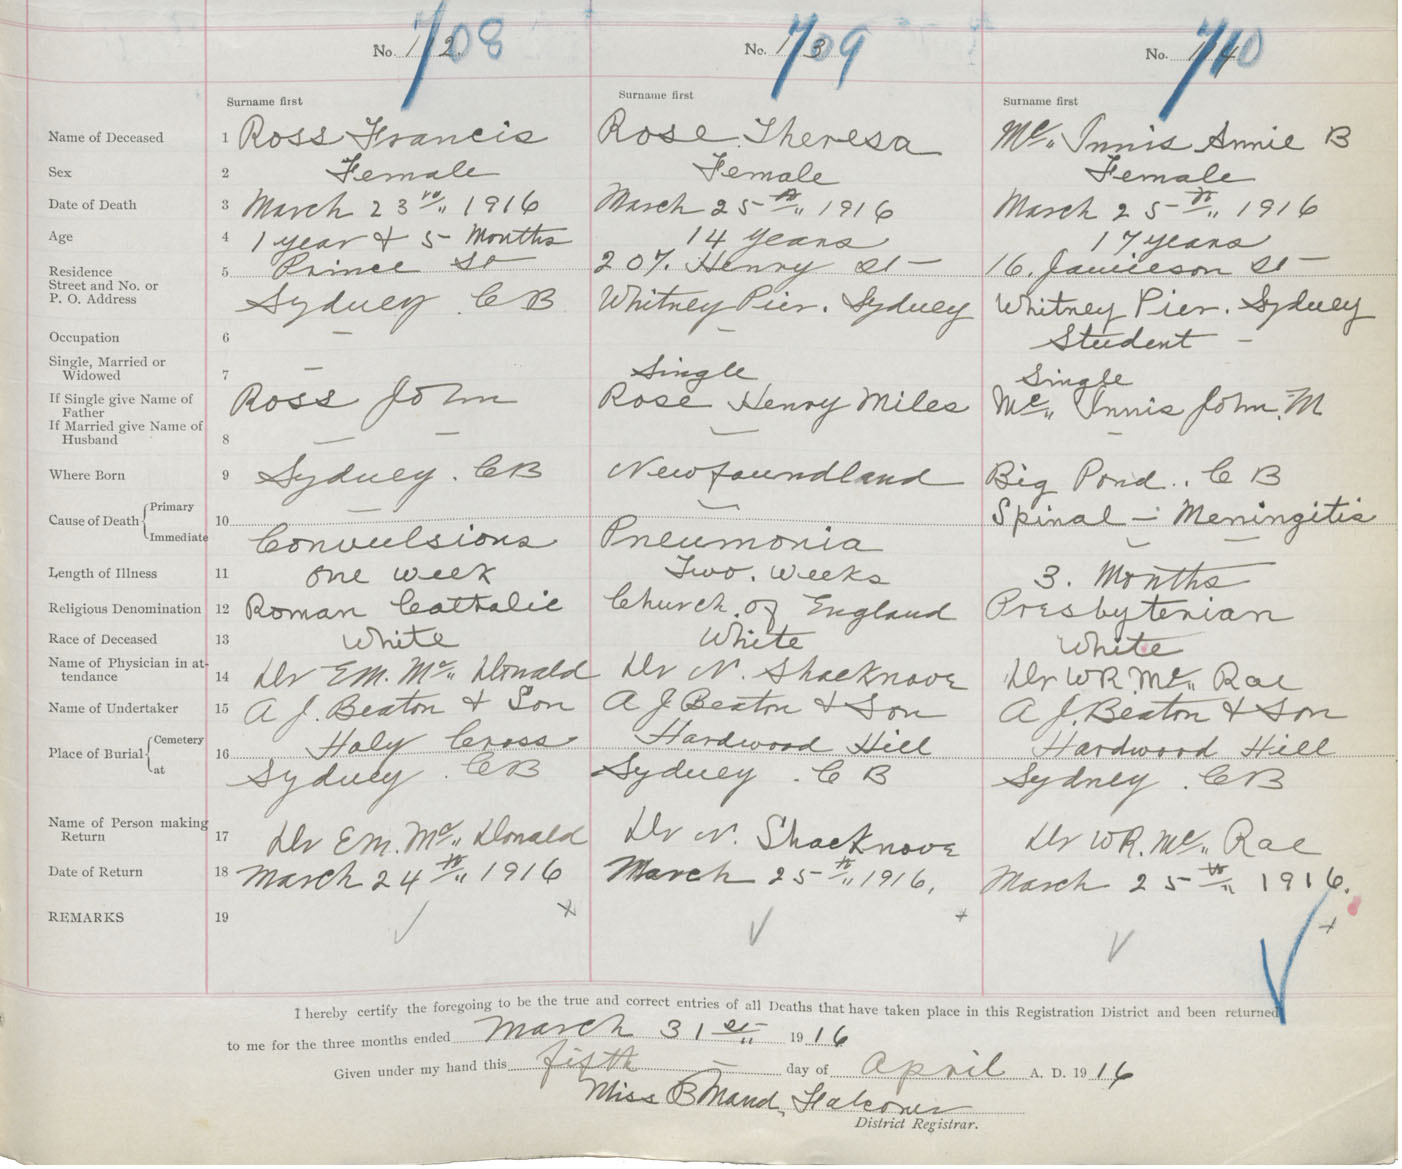 No. 12. 708 No. 13 709 No. 14 710
Surname first Surname first Surname first
Name of Deceased 1 Ross Francis Rose Theresa Mc„ Innis Annie B
Sex 2 Female Female Female
Date of Death 3 March 23rd„ 1916 March 25th„ 1916 March 25th„ 1916
Age 4 1 year & 5 Months 14 years 17 years
Residence 5 Prince St 207. Henry St 16. Jamieson St
Street and No. or
P. O. Address Sydney. C B Whitney Pier. Sydney Whitney Pier. Sydney
Occupation 6 — — Student —
Single, Married or
Widowed 7 — Single Single
If Single give Name of
Father Ross John Rose Henry Miles Mc„ Innis John. M
If Married give Name of
Husband 8 — — — —
Where Born 9 Sydney. C B Newfoundland Big Pond.. C B
Cause of Death { Primary 10 — — Spinal — Meningitis
Immediate Convulsions Pneumonia — —
Length of Illness 11 one week Two. weeks 3. Months
Religious Denomination 12 Roman Cathalic Church. of England Presbyterian
Race of Deceased 13 White White White
Name of Physician in at-
tendance 14 Dr E M. Mc„ Donald Dr N. Shacknove Dr W R. Mc„ Rae
Name of Undertaker 15 A J. Beaton & Son A J Beaton & Son A J. Beaton & Son
Place of Burial { Cemetery 16 Holy Cross Hardwood Hill Hardwood Hill
at Sydney. C B Sydney. C B Sydney. C B
Name of Person making
Return 17 Dr E M. Mc„ Donald Dr N. Shacknove Dr W R. Mc„ Rae
Date of Return 18 March 24th„ 1916 March 25th„ 1916. March 25th„ 1916.
REMARKS 19
I hereby certify the foregoing to be the true and correct entries of all Deaths that have taken place in this Registration District and been returned
to me for the three months ended March 31st„ 1916
Given under my hand this fifth — day of April A. D. 1916
Miss B Maud, Falconer
District Registrar.